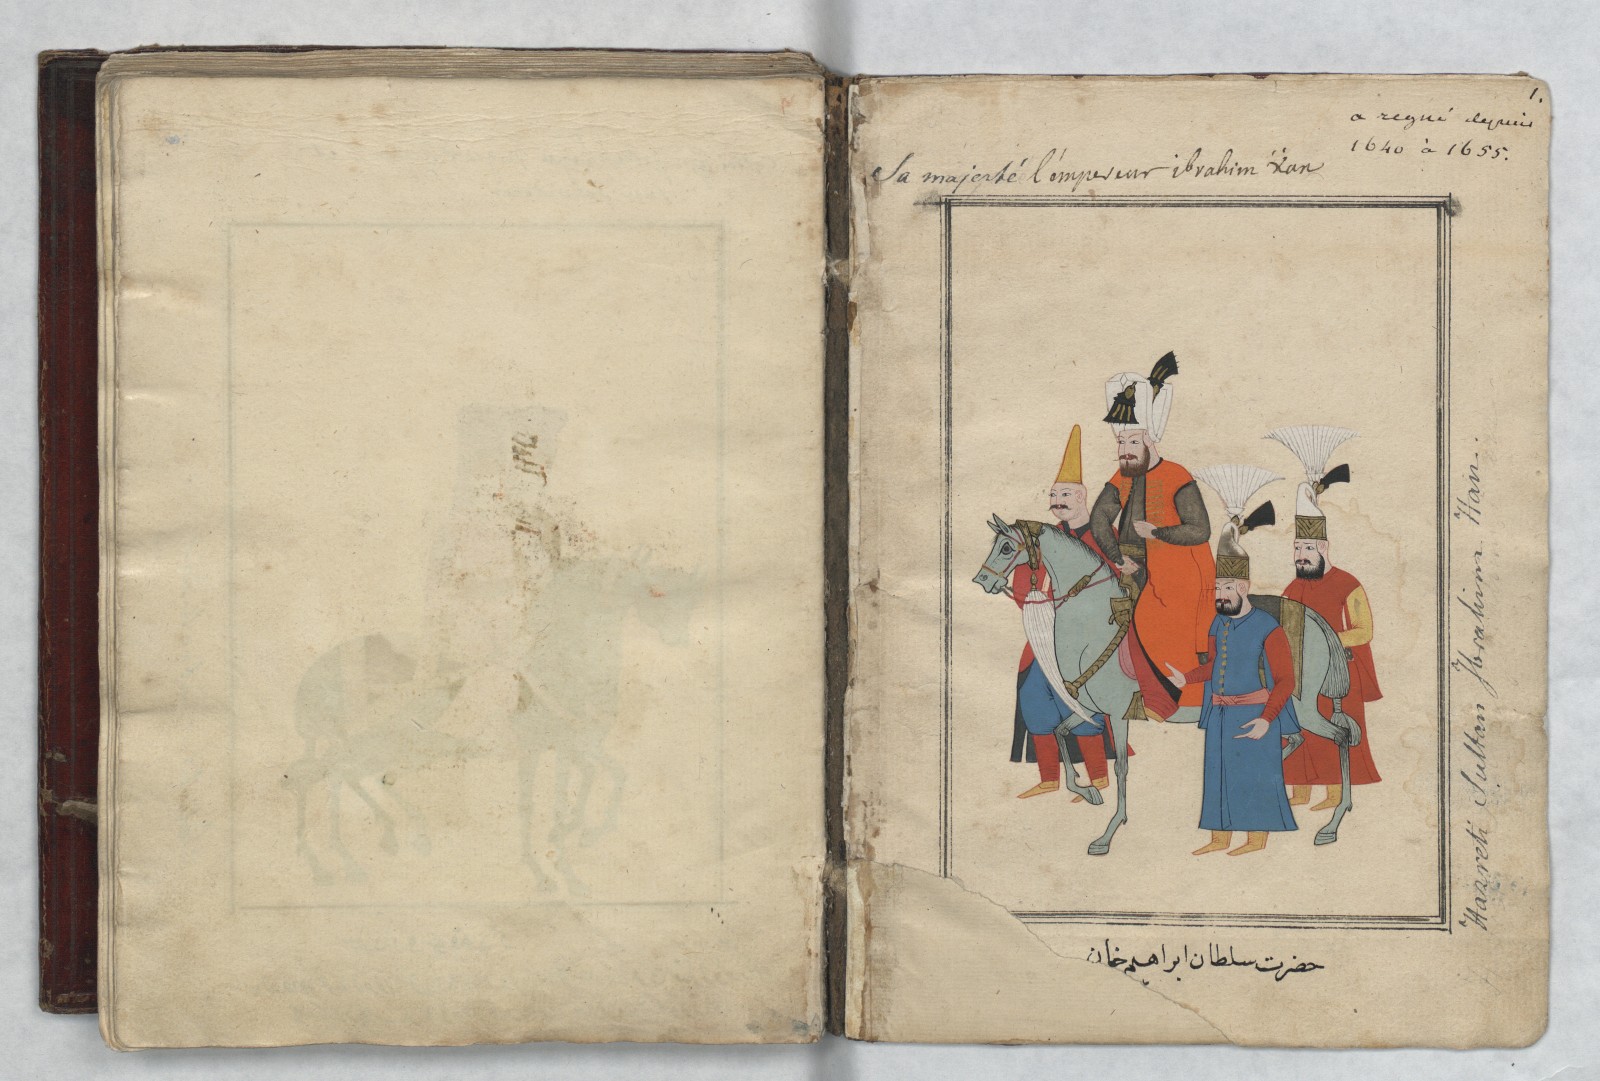 1.
a regné depuis
1640 à 1655.
Sa majesté l'empereur ibrahim Xan
Hazreti Sultan Ibrahim Han.
حضرت سلطان ابراهیم خان